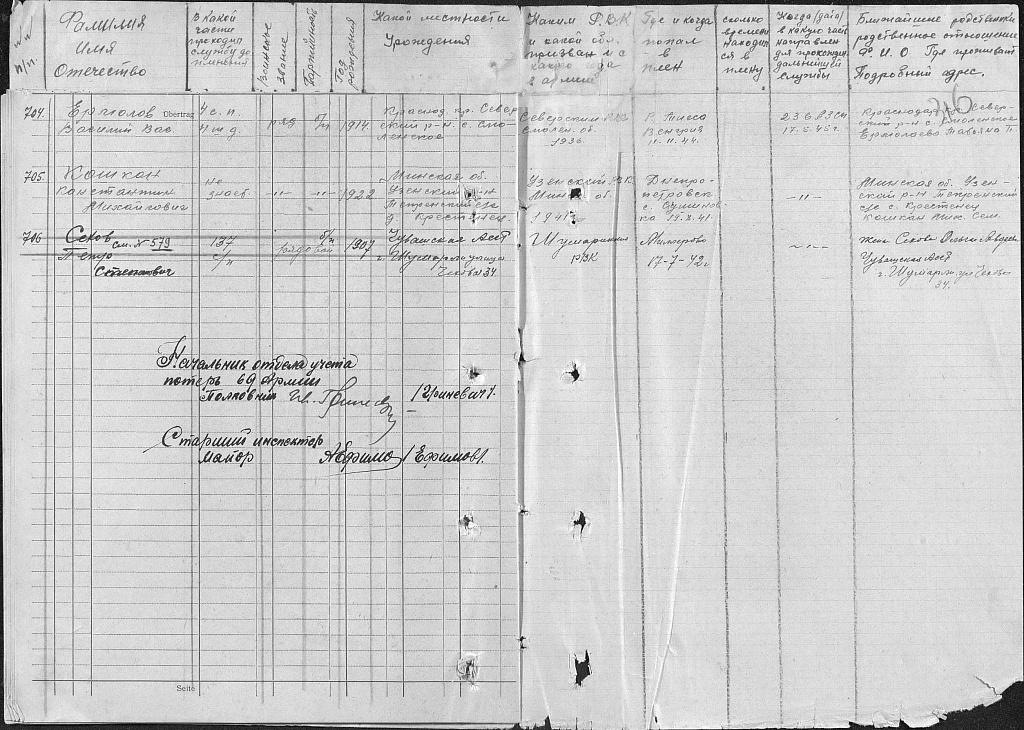 №№ п/п.
Фамилия
Имя
Отечество
В какой
части
проходил
службу до
пленения
воинское
звание
Партийность
Год
рождения
Какой местности
Урождения
Каким Р.В.К
и какой обл.
призван и с
какого года
в армии
Где и когда
попал
в
плен
сколько
времени
находил
ся в
плену
Когда (дата)
в какую часть
направлен
для прохожден
дальнейшей
службы
Ближайшие родственники
родственное отношение
Ф. И. О Где проживает
Подробный адрес.
704.
Ермолов
Василий Вас.
Übertrag
4 с. п.
4 т д.
ряд
б/п
1914
Краснод. кр. Север
ский р-н. с. Смо-
ленское
Северским РВК
Смолен. об.
1936
Р. Тисса
Венгрия
11.11.44.
236 83 сп
17.5.45 г.
Краснодар. кр. Север-
ский р-н с. Смоленское
705.
Кошкан
Константин
Михайлович
не
знает
-"-
-"-
1922
Минская об.
Узенский р-н
д. Крестенец
Узенский РВК
Минск об.
1941
Днепро-
петровск
-"-
Минская об. Узен-
с. Крестенец
Кошкан Мих. Сем.
706
Секов
см. № 579
Петр
Степанович
137
с/п
рядовой
б/п
1907
Чувашская АССР
г. Шумарля улица
Чехова 34
Шумарлинск
РВК
Миллерово
17-7-42 г
-"-
Жена Секова Ольга
Чувашская АССР
г. Шумарля ул Чехова
34.
Начальник отдела учета
потерь 69 Армии
Полковник
/Гриневич/.
Старший инспектор
майор
/Ефимов/.
Seite